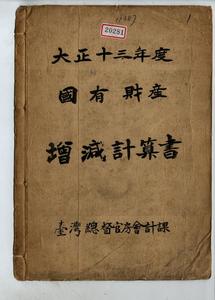 20251
大正十三年度
國有財産
增減計算書
臺灣總督官房會計課